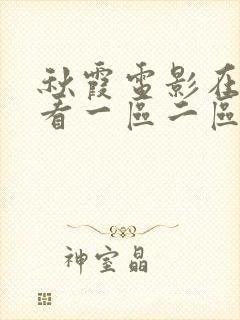 秋霞電影在
看一區二區
神室晶